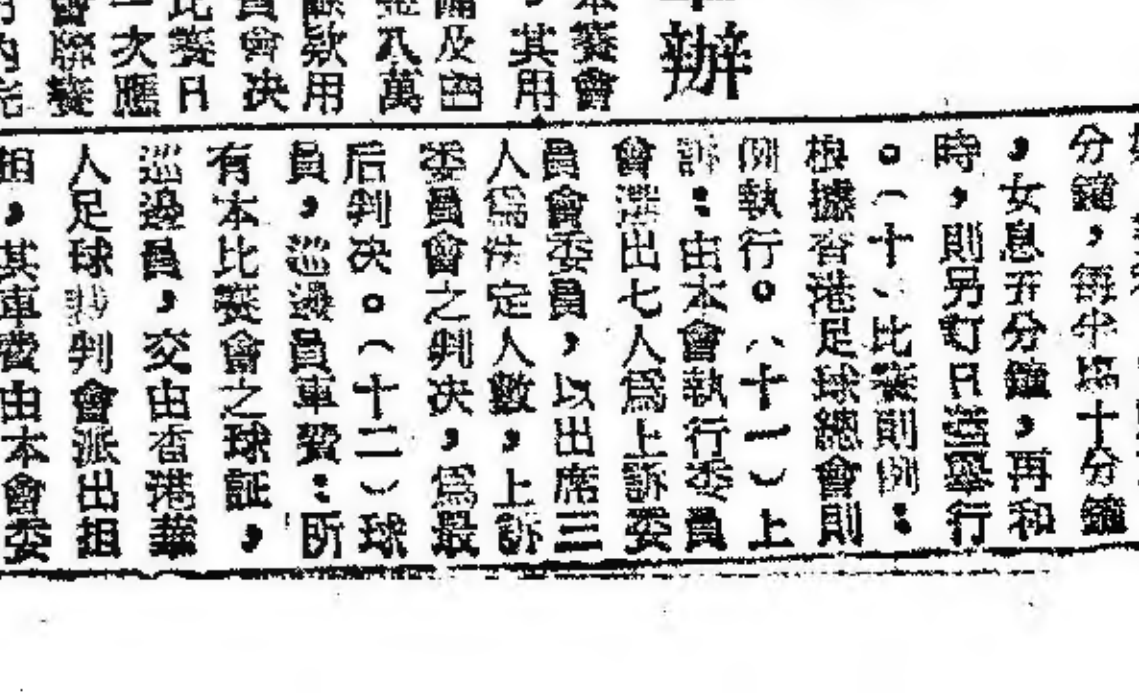 辦
本賽會
，其用
備及
八萬
款用
員會決
比賽日
一次應
會聯賽
分鐘，每半場十分鐘
，女息五分鐘，再和
時，則另訂日當舉行
。（十、比賽則例：
根據香港足球總會則
例執行。（十一）上
訴：由本會執行委員
會選出七人爲上訴委
員會委員，以出席三
人爲法定人數，上訴
委員會之判決，爲最
后判決。（十二）球
員，巡邊員車費：所
有本比賽會之球証，
巡邊員，交由香港華
人足球裁判會派出担
担，其車費由本會委